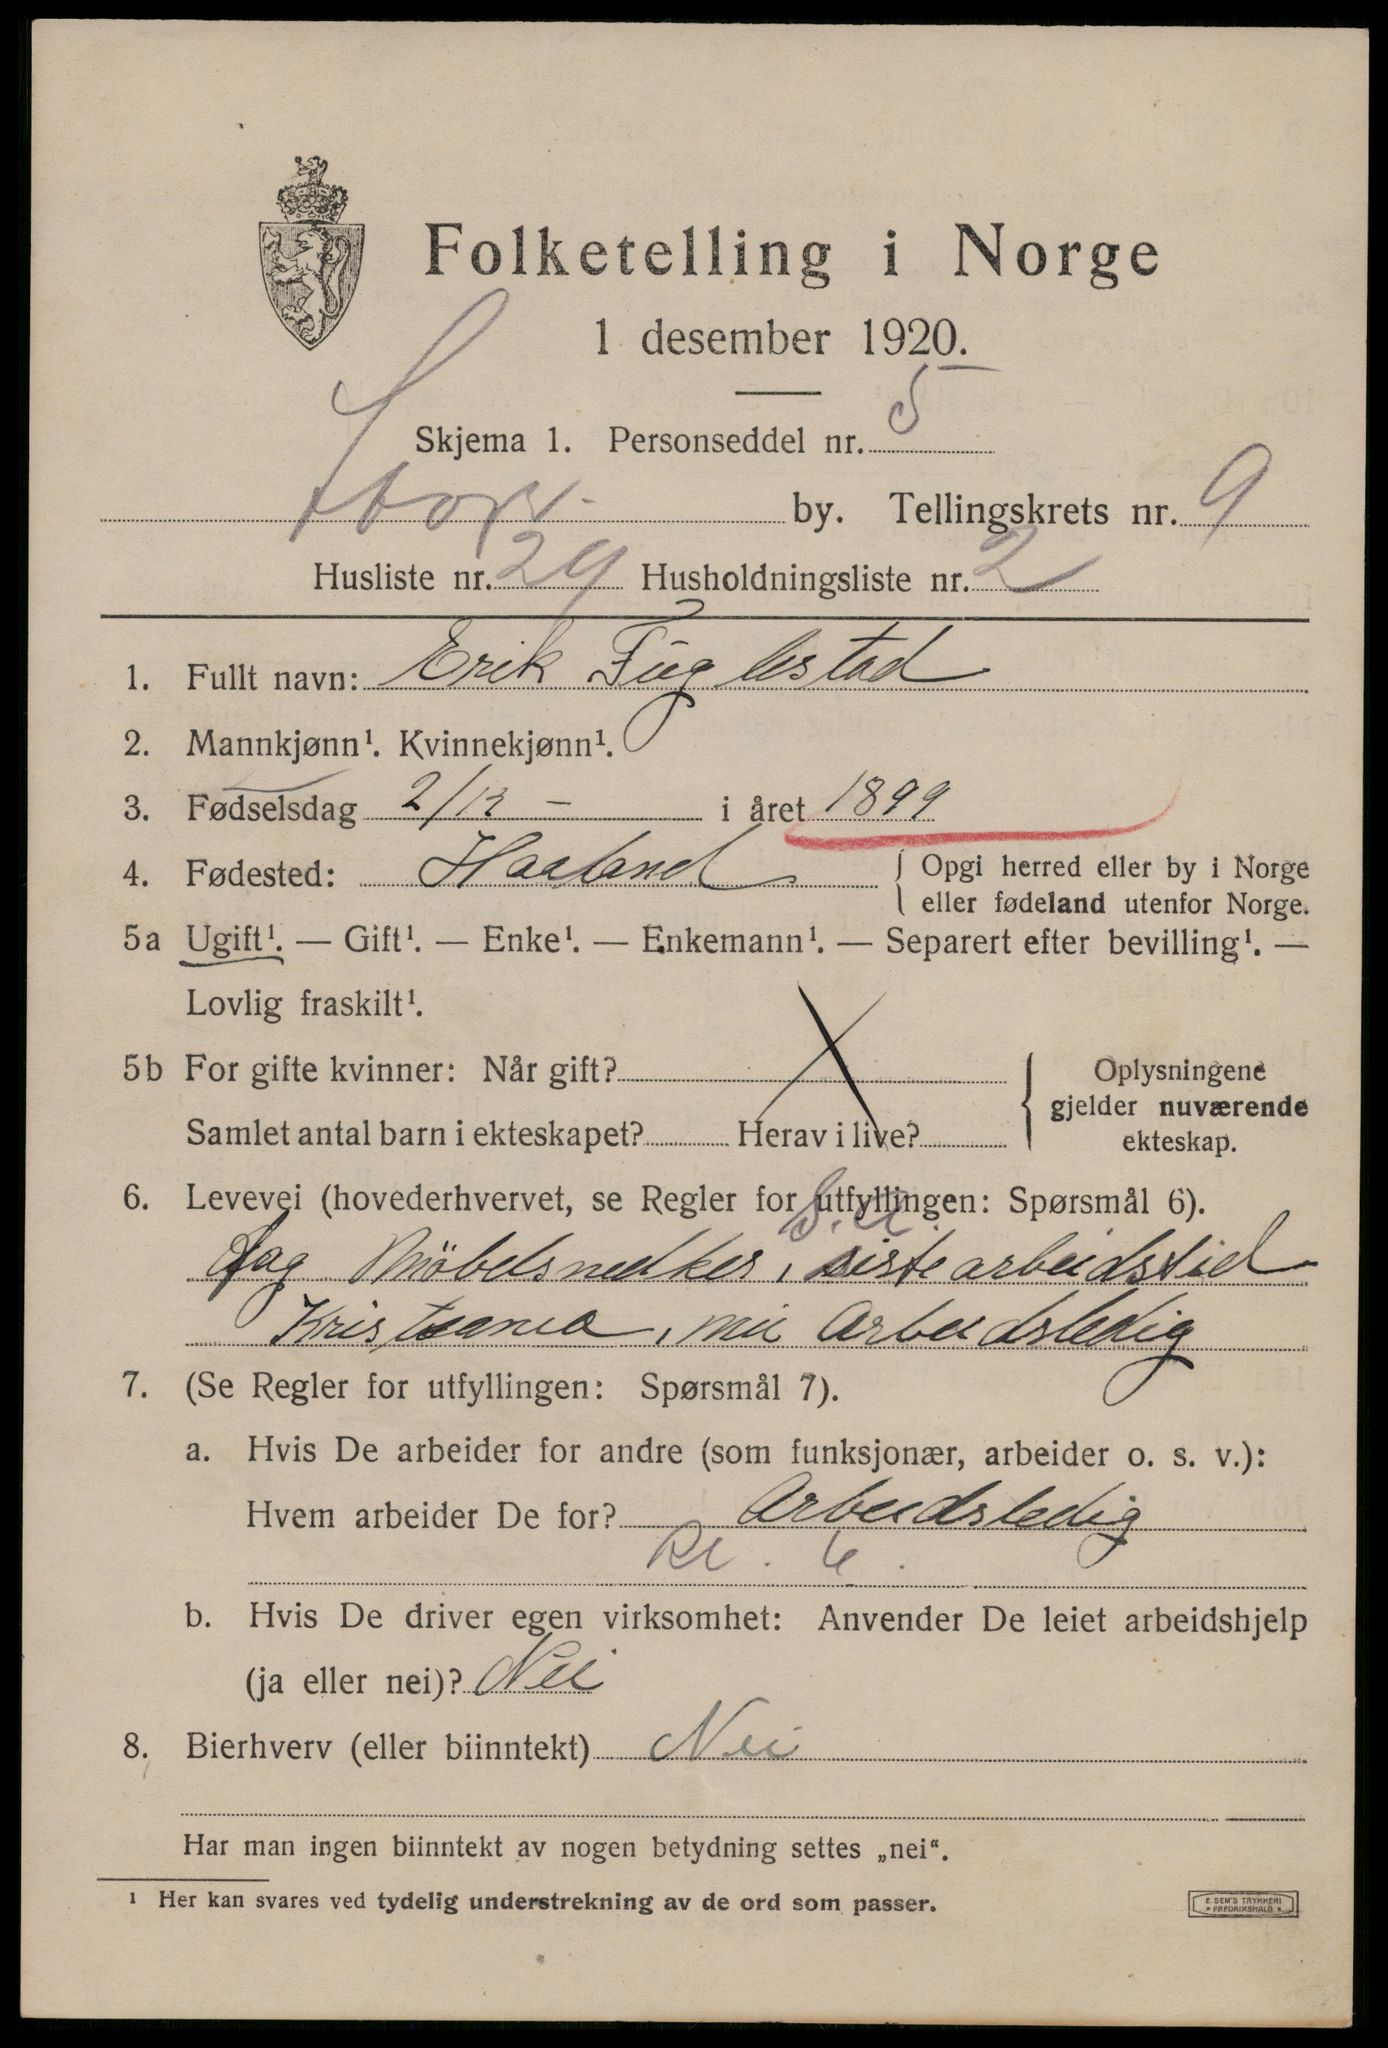 Folketelling i Norge
1 desember 1920.
Skjema 1. Personseddel nr. 5
Stav. by. Tellingskrets nr. 9
Husliste nr. 29 Husholdningsliste nr. 2
1. Fullt navn: Erik Fuglestad
2. Mannkjønn¹. Kvinnekjønn¹.
3. Fødselsdag 2/12 - i året 1899
4. Fødested: Haaland { Opgi herred eller by i Norge
eller fødeland utenfor Norge.
5a Ugift¹. — Gift¹. — Enke¹. — Enkemann¹. — Separert efter bevilling¹. —
Lovlig fraskilt¹.
5b For gifte kvinner: Når gift?
Samlet antal barn i ekteskapet? Herav i live?
{ Oplysningene
gjelder nuværende
ekteskap.
6. Levevei (hovederhvervet, se Regler for utfyllingen: Spørsmål 6).
Fag Möbelsnedker, siste arbeidstid
Kristiania, nu Arbeidsledig
7. (Se Regler for utfyllingen: Spørsmål 7).
a. Hvis De arbeider for andre (som funksjonær, arbeider o. s. v.):
Hvem arbeider De for? Arbeidsledig
b. Hvis De driver egen virksomhet: Anvender De leiet arbeidshjelp
(ja eller nei)? Nei
8. Bierhverv (eller biinntekt) Nei
Har man ingen biinntekt av nogen betydning settes „nei“.
¹ Her kan svares ved tydelig understrekning av de ord som passer.
E. SEM'S TRYKKERI
FREDRIKSHALD